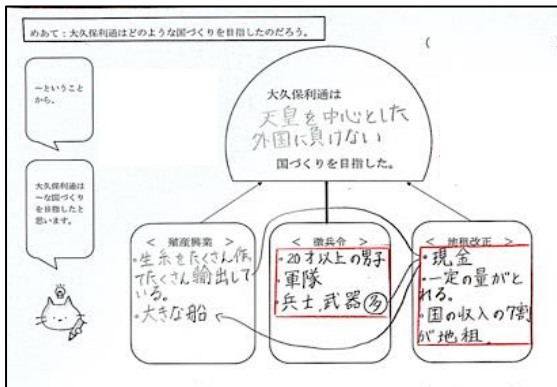 めあて：大久保利通はどのような国づくりを目指したのだろう。
(
～ということ
から、
大久保利通は
～な国づくり
を目指したと
思います。
大久保利通は
天皇を中心とした
外国に負けない
国づくりを目指した。
＜ 殖産興業 ＞
・生糸をたくさん作っ
てたくさん輸出して
いる。
・大きな船
＜ 徴兵令 ＞
・20才以上の男子
・軍隊
・兵士、武器 多
＜ 地租改正 ＞
・現金
・一定の量がと
れる。
・国の収入の7割
が地租。